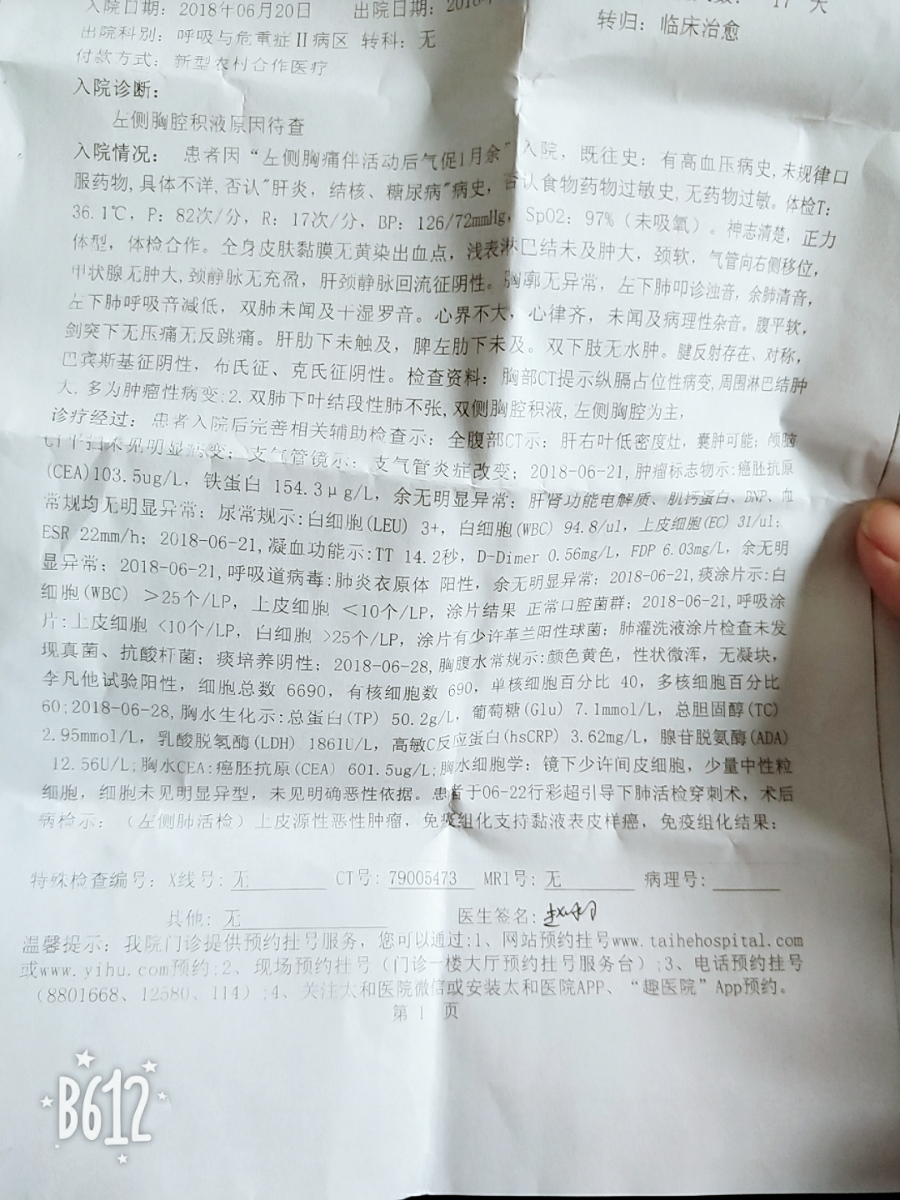 入院日期: 2018年06月20日 出院日期: 2018年 17 天
出院科别: 呼吸与危重症Ⅱ病区 转科: 无 转归: 临床治愈
付款方式: 新型农村合作医疗
入院诊断:
左侧胸腔积液原因待查
入院情况: 患者因“左侧胸痛伴活动后气促1月余”入院, 既往史: 有高血压病史, 未规律口
服药物, 具体不详, 否认"肝炎, 结核、糖尿病"病史, 否认食物药物过敏史, 无药物过敏。体检T:
36.1℃, P: 82次/分, R: 17次/分, BP: 126/72mmHg, SpO2: 97% (未吸氧) 。神志清楚, 正力
体型, 体检合作。全身皮肤黏膜无黄染出血点, 浅表淋巴结未及肿大, 颈软, 气管向右侧移位,
甲状腺无肿大, 颈静脉无充盈, 肝颈静脉回流征阴性。胸廓无异常, 左下肺叩诊浊音, 余肺清音,
左下肺呼吸音减低, 双肺未闻及干湿罗音。心界不大, 心律齐, 未闻及病理性杂音。腹平软,
剑突下无压痛无反跳痛。肝肋下未触及, 脾左肋下未及。双下肢无水肿。腱反射存在、对称,
巴宾斯基征阴性, 布氏征、克氏征阴性。检查资料: 胸部CT提示纵膈占位性病变, 周围淋巴结肿
大, 多为肿瘤性病变; 2, 双肺下叶结段性肺不张, 双侧胸腔积液, 左侧胸腔为主,
诊疗经过: 患者入院后完善相关辅助检查示: 全腹部CT示: 肝右叶低密度灶, 囊肿可能; 颅脑
CT平扫未见明显病变; 支气管镜示: 支气管炎症改变; 2018-06-21, 肿瘤标志物示: 癌胚抗原
(CEA)103.5ug/L, 铁蛋白 154.3μg/L, 余无明显异常; 肝肾功能电解质、肌钙蛋白、BNP、血
常规均无明显异常; 尿常规示: 白细胞(LEU) 3+, 白细胞(WBC) 94.8/ul, 上皮细胞(EC) 31/ul;
ESR 22mm/h; 2018-06-21, 凝血功能示: TT 14.2秒, D-Dimer 0.56mg/L, FDP 6.03mg/L, 余无明
显异常; 2018-06-21, 呼吸道病毒: 肺炎衣原体 阳性, 余无明显异常; 2018-06-21, 痰涂片示: 白
细胞(WBC) >25个/LP, 上皮细胞 <10个/LP, 涂片结果 正常口腔菌群; 2018-06-21, 呼吸涂
片: 上皮细胞 <10个/LP, 白细胞 >25个/LP, 涂片有少许革兰阳性球菌; 肺灌洗液涂片检查未发
现真菌、抗酸杆菌; 痰培养阴性; 2018-06-28, 胸腹水常规示: 颜色黄色, 性状微浑, 无凝块,
李凡他试验阳性, 细胞总数 6690, 有核细胞数 690, 单核细胞百分比 40, 多核细胞百分比
60; 2018-06-28, 胸水生化示: 总蛋白(TP) 50.2g/L, 葡萄糖(Glu) 7.1mmol/L, 总胆固醇(TC)
2.95mmol/L, 乳酸脱氢酶(LDH) 186IU/L, 高敏C反应蛋白(hsCRP) 3.62mg/L, 腺苷脱氨酶(ADA)
12.56U/L; 胸水CEA: 癌胚抗原(CEA) 601.5ug/L; 胸水细胞学: 镜下少许间皮细胞, 少量中性粒
细胞, 细胞未见明显异型, 未见明确恶性依据。患者于06-22行彩超引导下肺活检穿刺术, 术后
病检示: (左侧肺活检) 上皮源性恶性肿瘤, 免疫组化支持黏液表皮样癌, 免疫组化结果:
特殊检查编号: X线号: 无 CT号: 79005473 MRI号: 无 病理号:
其他: 无 医生签名:
温馨提示: 我院门诊提供预约挂号服务, 您可以通过: 1、网站预约挂号www.taihehospital.com
或www.yihu.com预约; 2、现场预约挂号 (门诊一楼大厅预约挂号服务台) ; 3、电话预约挂号
(8801668、12580、114) ; 4、关注太和医院微信或安装太和医院APP、“趣医院”App预约。
第 1 页
B612